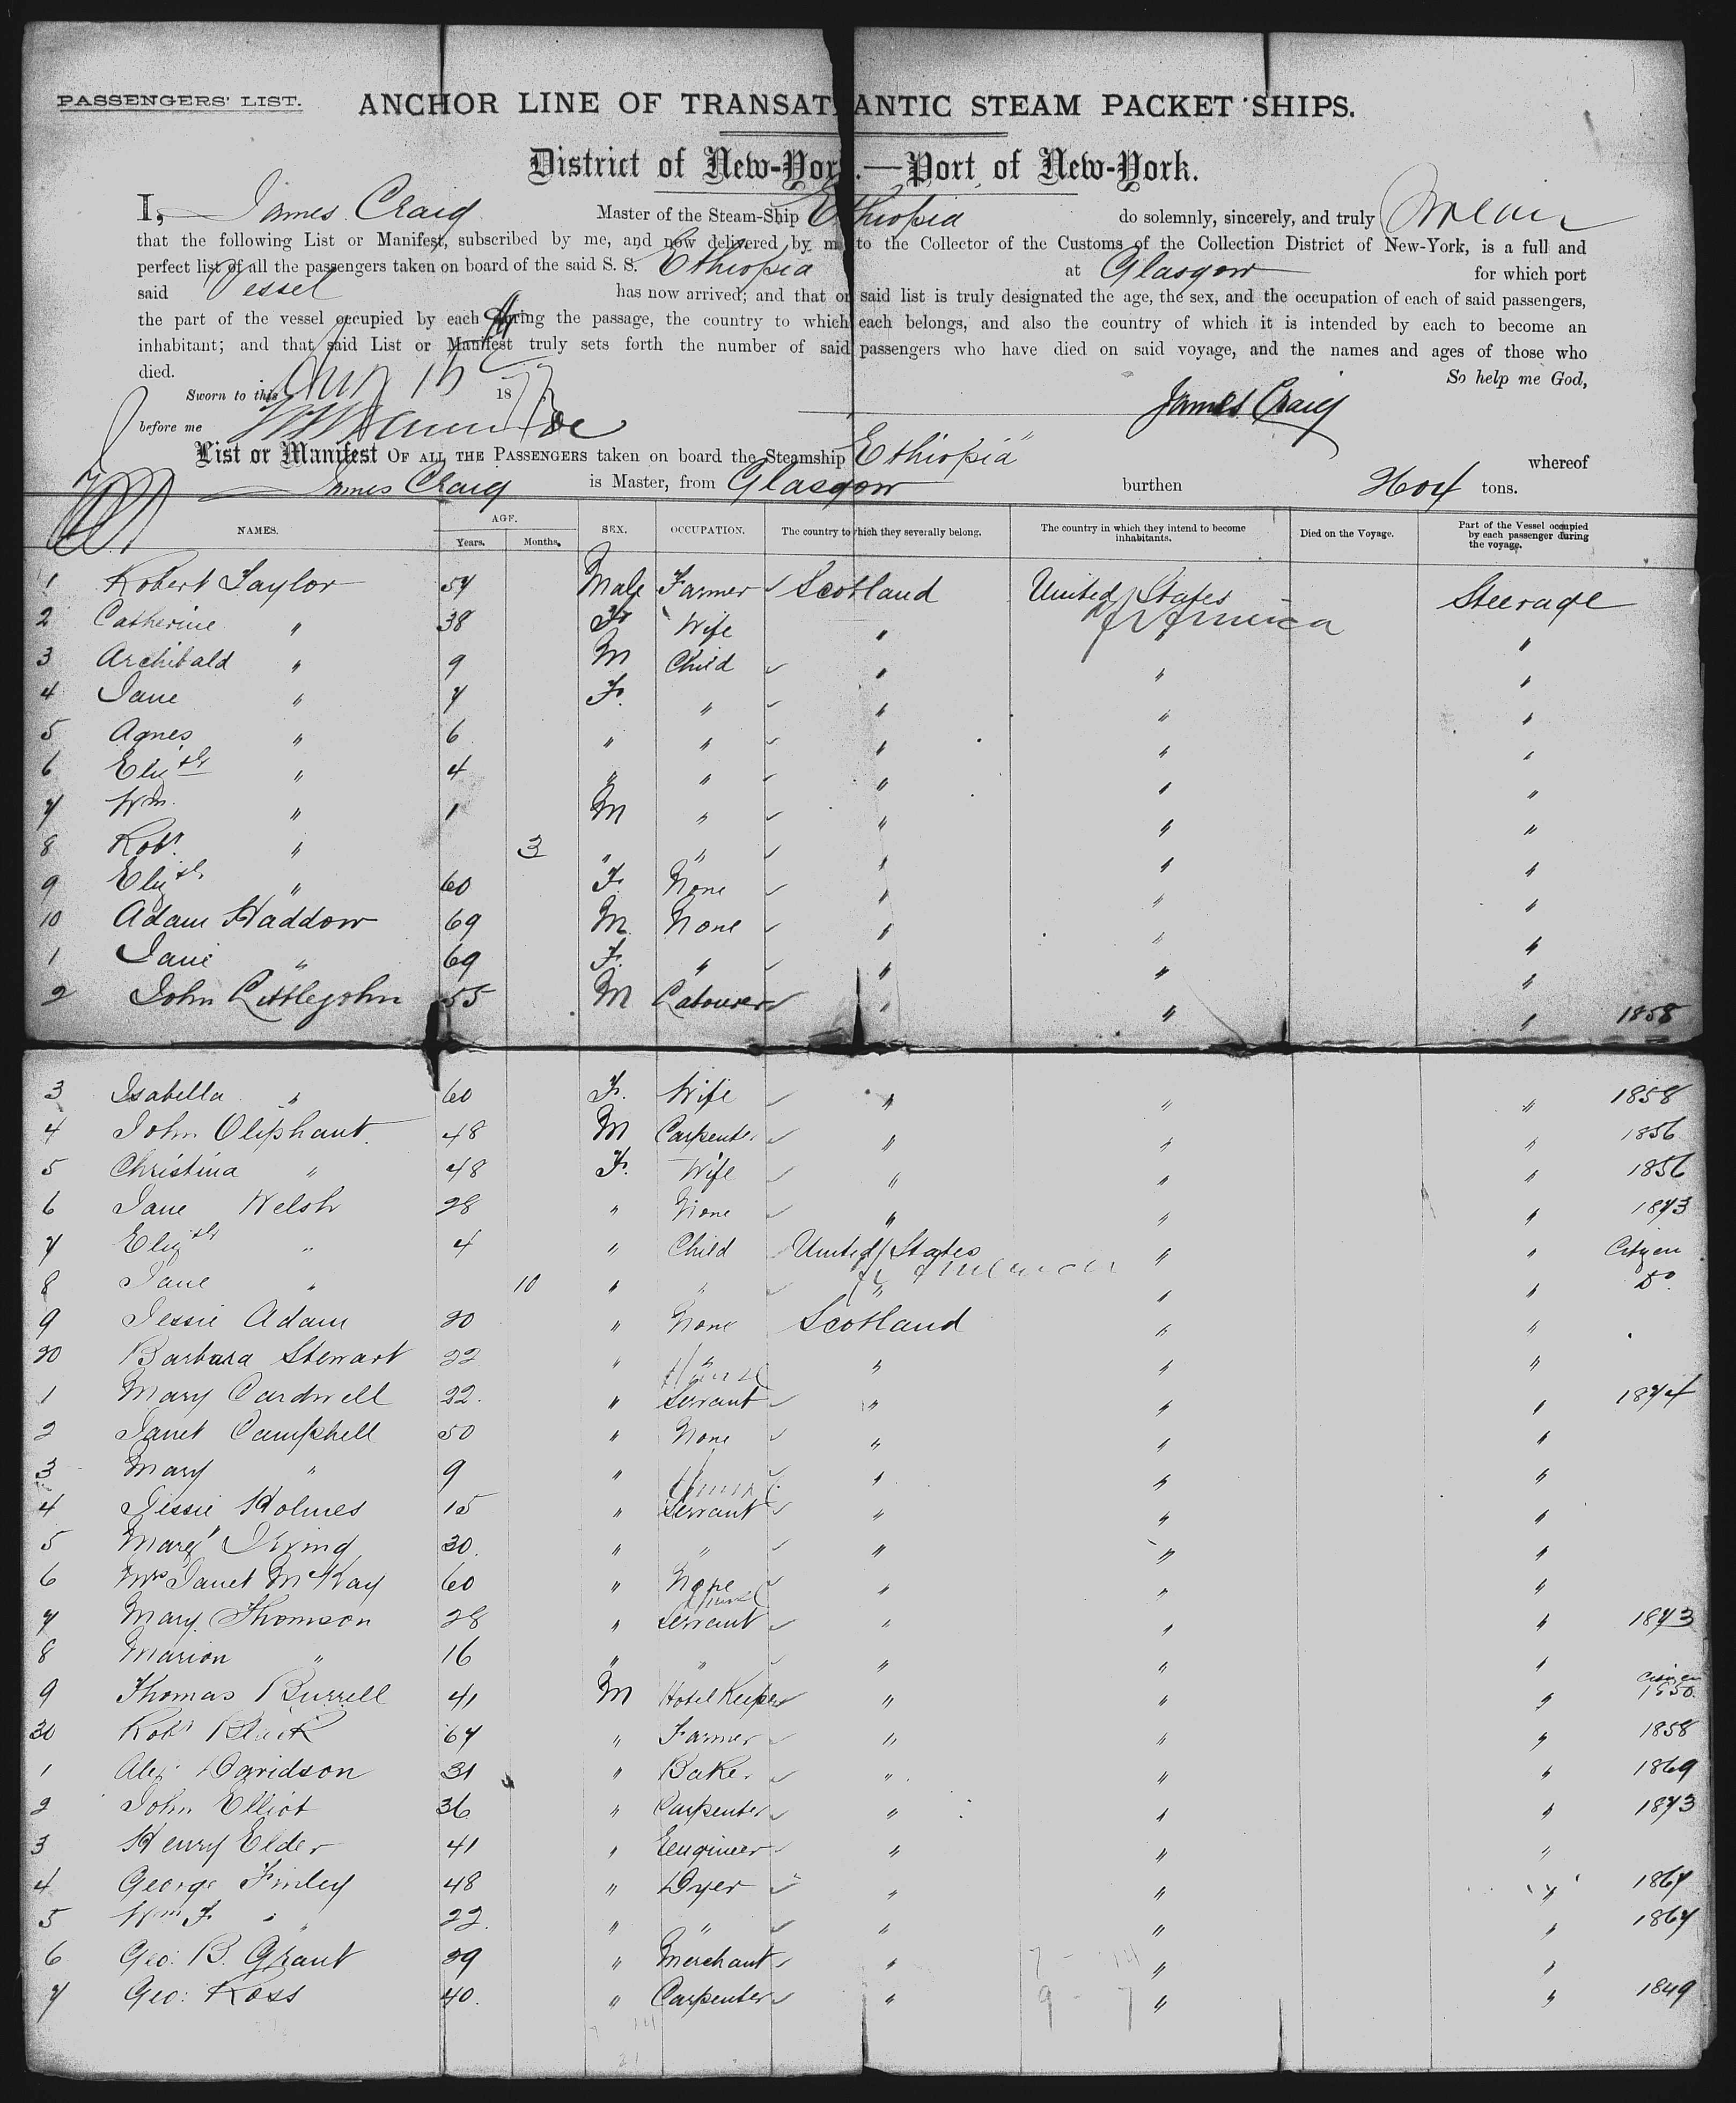 PASSENGERS' LIST.
ANCHOR LINE OF TRANSATLANTIC STEAM PACKET SHIPS.
District of New-York.—Port of New-York.
I, James Craig Master of the Steam-Ship Ethiopia do solemnly, sincerely, and truly Swear
that the following List or Manifest, subscribed by me, and now delivered by me to the Collector of the Customs of the Collection District of New-York, is a full and
perfect list of all the passengers taken on board of the said S. S. Ethiopia at Glasgow for which port
said Vessel has now arrived; and that on said list is truly designated the age, the sex, and the occupation of each of said passengers,
the part of the vessel occupied by each during the passage, the country to which each belongs, and also the country of which it is intended by each to become an
inhabitant; and that said List or Manifest truly sets forth the number of said passengers who have died on said voyage, and the names and ages of those who
died. So help me God,
Sworn to this 18
James Craig
before me
List or Manifest OF ALL THE PASSENGERS taken on board the Steamship "Ethiopia" whereof
James Craig is Master, from Glasgow burthen tons.
NAMES. AGE. Years. Months. SEX. OCCUPATION. The country to which they severally belong. The country in which they intend to become inhabitants. Died on the Voyage. Part of the Vessel occupied by each passenger during the voyage.
1 Robert Taylor 57 Male Farmer Scotland United States of America Steerage
2 Catherine " 38 F. Wife " " "
3 Archibald " 9 M Child " " "
4 Jane " 7 F. " " " "
5 Agnes " 6 " " " " "
6 Elizth " 4 " " " " "
7 Wm. " 1 M " " " "
8 Robt. " 3 " " " " "
9 Elizth " 60 F. None " " "
10 Adam Haddow 69 M. None " " "
1 Jane " 69 F. " " " "
2 John Littlejohn 55 M Labourer " " " 1858
3 Isabella " 60 F. Wife " " " 1858
4 John Oliphant 48 M Carpenter " " " 1856
5 Christina " 48 F. Wife " " " 1856
6 Jane Welsh 28 " None " " " 1873
7 Elizth " 4 " Child United States of America " " Citizen
8 Jane " 10 " " " " " Do.
9 Jessie Adam 20 " None Scotland " "
20 Barbara Stewart 22 " " " " "
1 Mary Cardwell 22. " Servant " " " 1874
2 Janet Campbell 50 " None " " "
3 Mary " 9 " " " "
4 Jessie Holmes 15 " Servant " " "
5 Margt Irving 30. " " " " "
6 Mrs Janet McKay 60 " None " " "
7 Mary Thomson 28 " Servant " " " 1873
8 Marion " 16 " " " " "
9 Thomas Burrell 41 M Hotel Keeper " " " Citizen 1850.
30 Robt Black 67 " Farmer " " " 1858
1 Alex. Davidson 31 " Baker " " " 1869
2 John Elliot 36 " Carpenter " " " 1873
3 Henry Elder 41 " Engineer " " "
4 George Finley 48 " Dyer " " " 1867
5 Wm F. " 22. " " " " " 1867
6 Geo: B. Grant 39 " Merchant " " "
7 Geo: Ross 40. " Carpenter " " " 1849
7 - 14
9 - 7
7 14
21